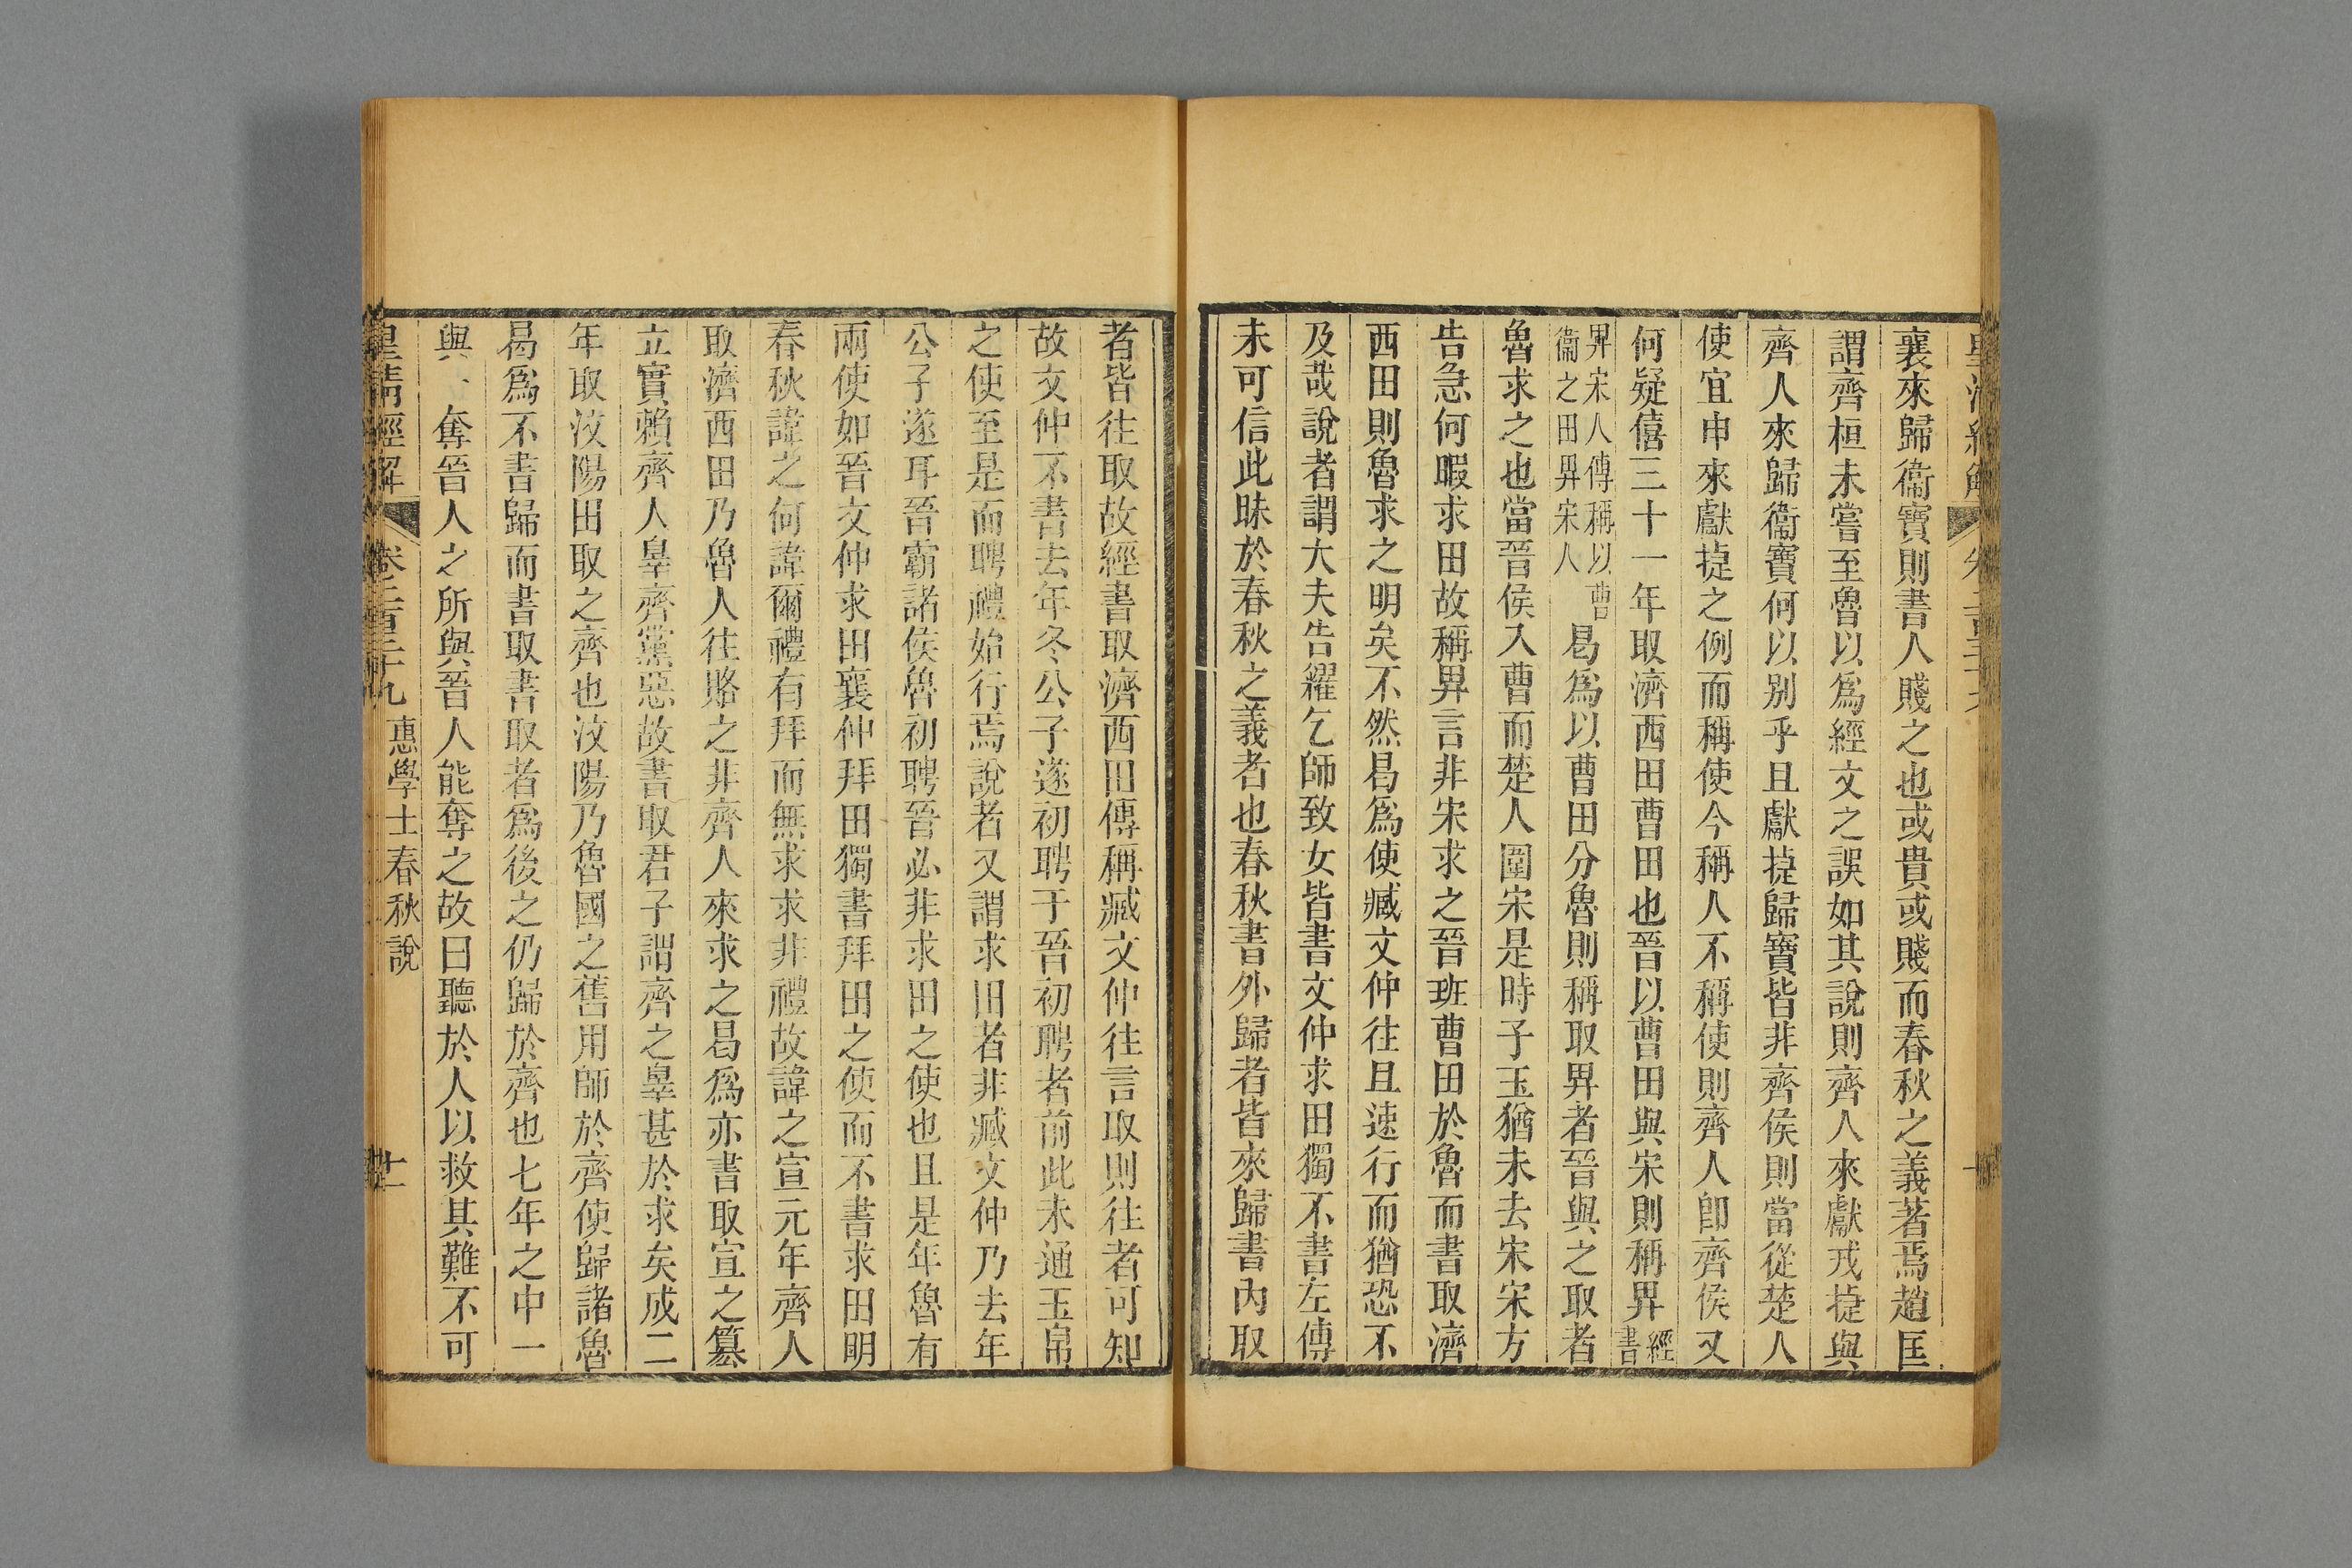 襄來歸衞寶則書人賤之也或貴或賤而春秋之義著焉趙匡
謂齊桓未嘗至魯以爲經文之誤如其說則齊人來獻戎捷與
齊人來歸衞寶何以別乎且獻捷歸寶皆非齊侯則當從楚人
使宜申來獻捷之例而稱使今稱人不稱使則齊人卽齊侯又
何疑僖三十一年取濟西田曹田也晉以曹田與宋則稱畀經書
畀宋人傳稱以曹衞之田畀宋人曷爲以曹田分魯則稱取畀者晉與之取者
魯求之也當晉侯入曹而楚人圍宋是時子玉猶未去宋宋方
告急何暇求田故稱畀言非宋求之晉班曹田於魯而書取濟
西田則魯求之明矣不然曷爲使臧文仲往且速行而猶恐不
及哉說者謂大夫告糴乞師致女皆書文仲求田獨不書左傳
未可信此昧於春秋之義者也春秋書外歸者皆來歸書內取
者皆往取故經書取濟西田傳稱臧文仲往言取則往者可知
故文仲不書去年冬公子遂初聘于晉初聘者前此未通玉帛
之使至是而聘禮始行焉說者又謂求田者非臧文仲乃去年
公子遂耳晉霸諸侯魯初聘晉必非求田之使也且是年魯有
兩使如晉文仲求田襄仲拜田獨書拜田之使而不書求田明
春秋諱之何諱爾禮有拜而無求求非禮故諱之宣元年齊人
取濟西田乃魯人往賂之非齊人來求之曷爲亦書取宣之簒
立實賴齊人辠齊黨惡故書取君子謂齊之辠甚於求矣成二
年取汶陽田取之齊也汶陽乃魯國之舊用師於齊使歸諸魯
曷爲不書歸而書取書取者爲後之仍歸於齊也七年之中一
與、奪晉人之所與晉人能奪之故曰聽於人以救其難不可
皇淸經解 卷二百三十九 惠學士春秋說 十一